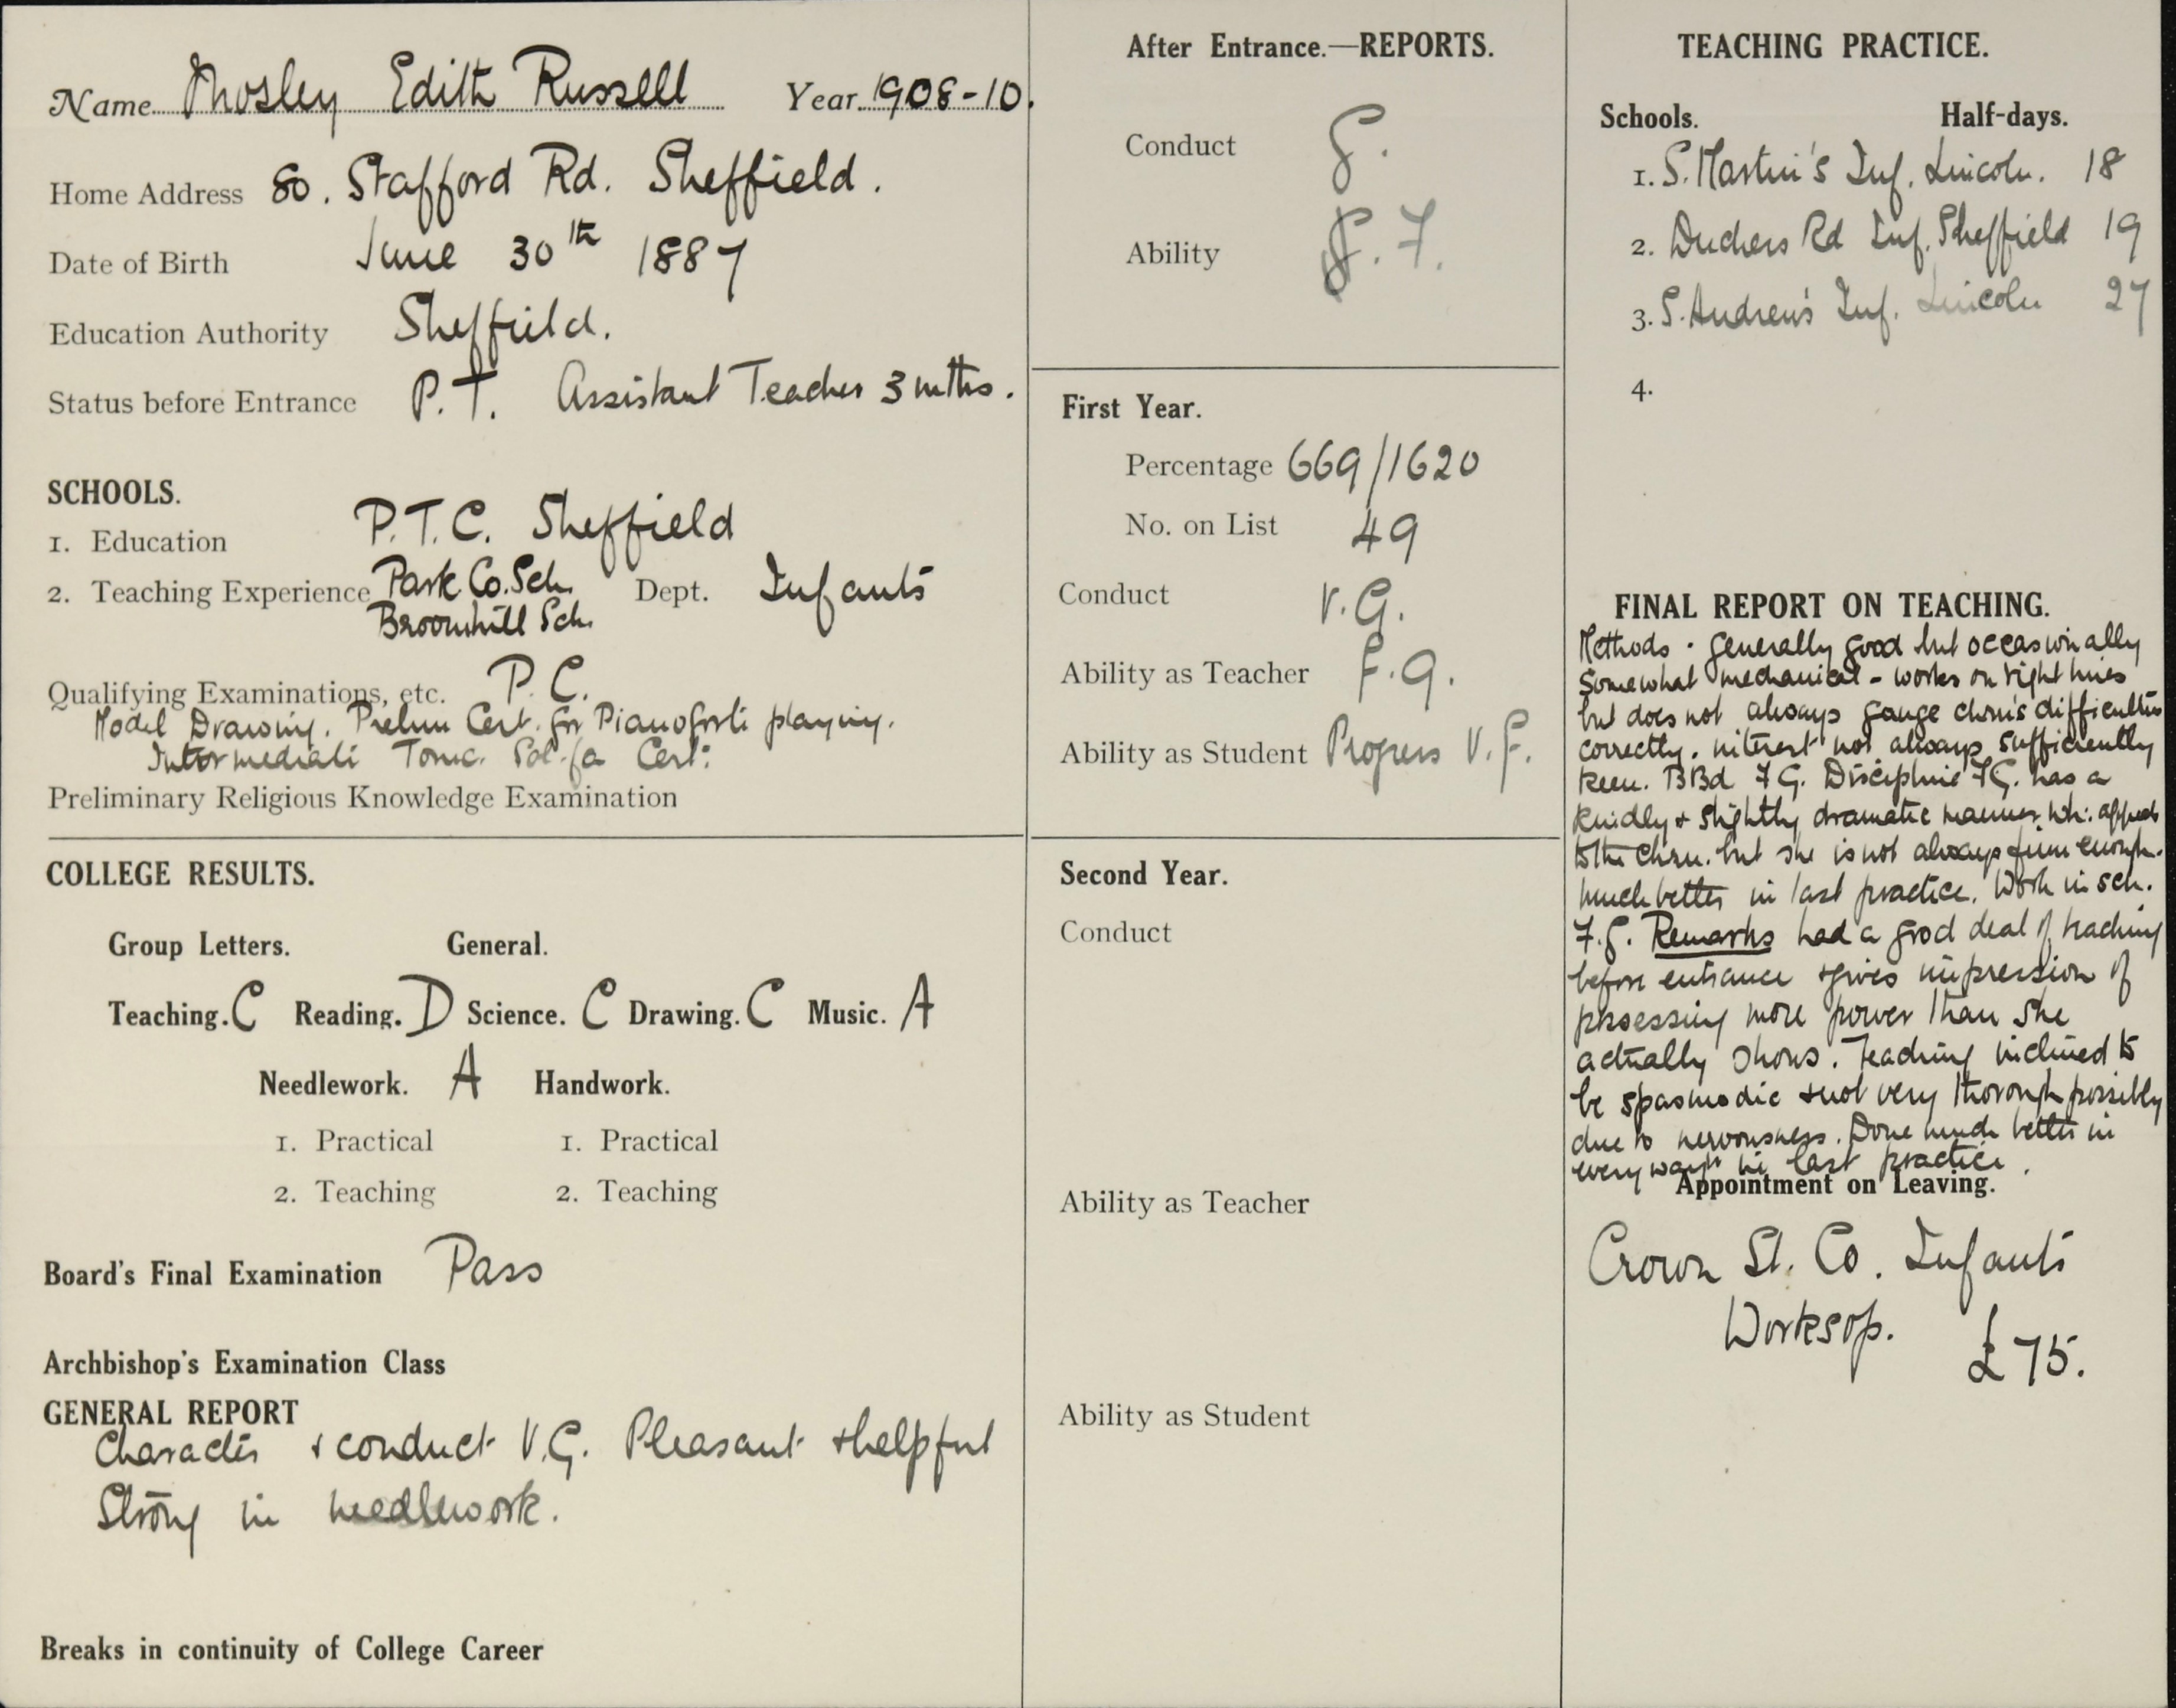 Name Mosley Edith Russell Year 1908-10.
Home Address 80. Stafford Rd. Sheffield.
Date of Birth June 30th 1887
Education Authority Sheffield.
Status before Entrance P.T. Assistant Teacher 3 mths.
SCHOOLS.
1. Education P.T.C. Sheffield
2. Teaching Experience Park Co. Sch. Dept. Infants
Broomhill Sch.
Qualifying Examinations, etc. P.C.
Model Drawing. Prelim Cert. for Pianoforte playing.
Intermediate Tonic. Sol-fa Cert:
Preliminary Religious Knowledge Examination
COLLEGE RESULTS.
Group Letters. General.
Teaching. C Reading. D Science. C Drawing. C Music. A
Needlework. A Handwork.
1. Practical 1. Practical
2. Teaching 2. Teaching
Board's Final Examination Pass
Archbishop's Examination Class
GENERAL REPORT
Character & conduct V.G. Pleasant & helpful
Strong in needlework.
Breaks in continuity of College Career
After Entrance.—REPORTS.
Conduct G.
Ability F.
First Year.
Percentage 669/1620
No. on List 49
Conduct V.G.
Ability as Teacher F.G.
Ability as Student Progress V.F.
Second Year.
Conduct
Ability as Teacher
Ability as Student
TEACHING PRACTICE.
Schools. Half-days.
1. S. Martin's Inf. Lincoln. 18
2. Duchess Rd Inf. Sheffield 19
3. S. Andrew's Inf. Lincoln 27
4.
FINAL REPORT ON TEACHING.
Methods - generally good but occasionally
somewhat mechanical - works on right lines
but does not always gauge chn's difficulties
correctly. interest not always sufficiently
keen. BBd F G. Discipline F G. has a
kindly & slightly dramatic manner wh: appeals
to the chn. but she is not always firm enough.
much better in last practice. Work in sch.
F.G. Remarks had a good deal of teaching
before entrance & gives impression of
possessing more power than she
actually shows. Teaching inclined to
be spasmodic & not very thorough possibly
due to nervousness. Done much better in
every way in last practice.
Appointment on Leaving.
Crown St. Co. Infants
Worksop. £75.